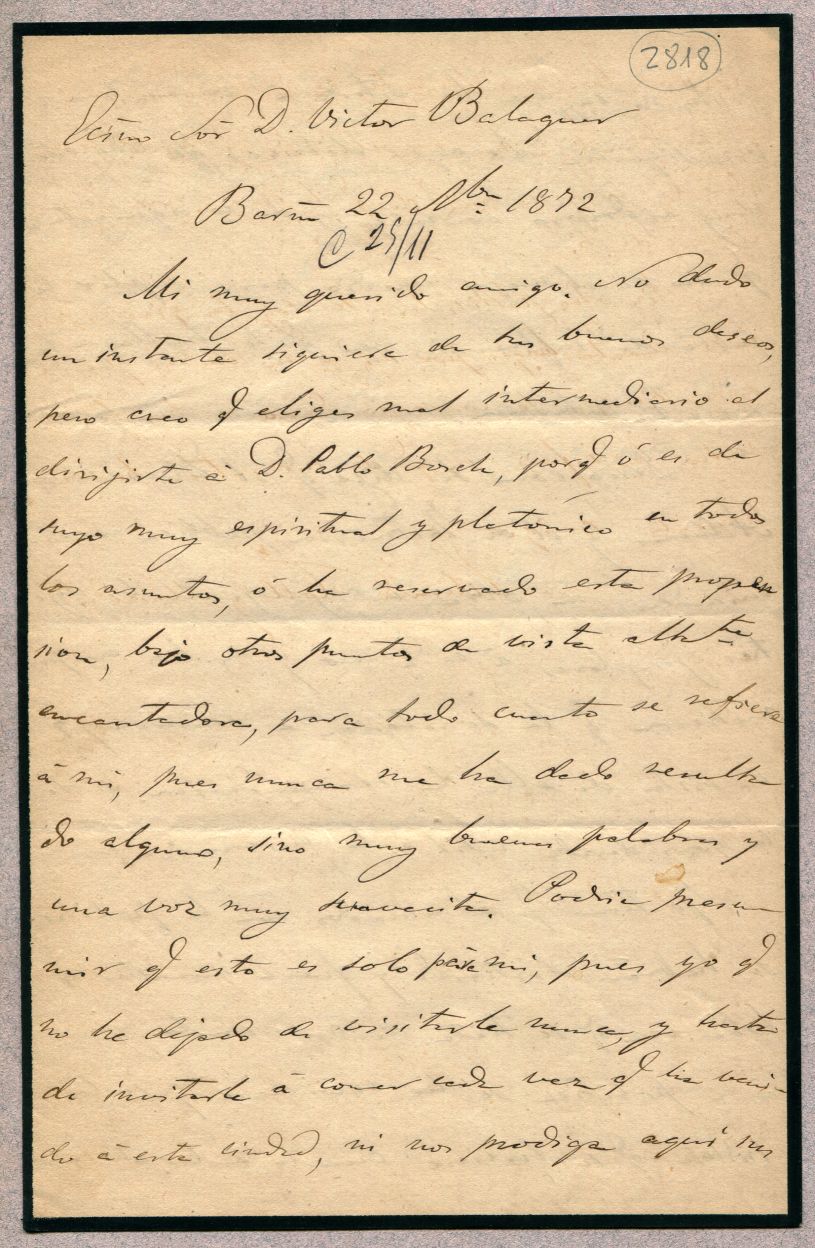 2818
Ecsmo Sôr D. Victor Balaguer
Barna 22 Nbre 1872
C 25/11
Mi muy querido amigo. No dudo
un instante siquiera de tus buenos deseos,
pero creo q eliges mal intermediario al
dirijirte á D. Pablo Bosch, porq ó es de
suyo muy espiritual y platónico en todos
los asuntos, ó ha reservado esta propen
sion, bajo otros puntos de vista altte
encantadora, para todo cuanto se refiera
á mi, pues nunca me ha dado resulta
do alguno, sino muy buenas palabras y
una voz muy suavecita. Podria presu-
mir q esto es solo para mi, pues yo q
no he dejado de visitarle nunca, y hasta
de invitarle á comer cada vez q ha veni-
do á esta ciudad, ni nos prodiga aquí sus